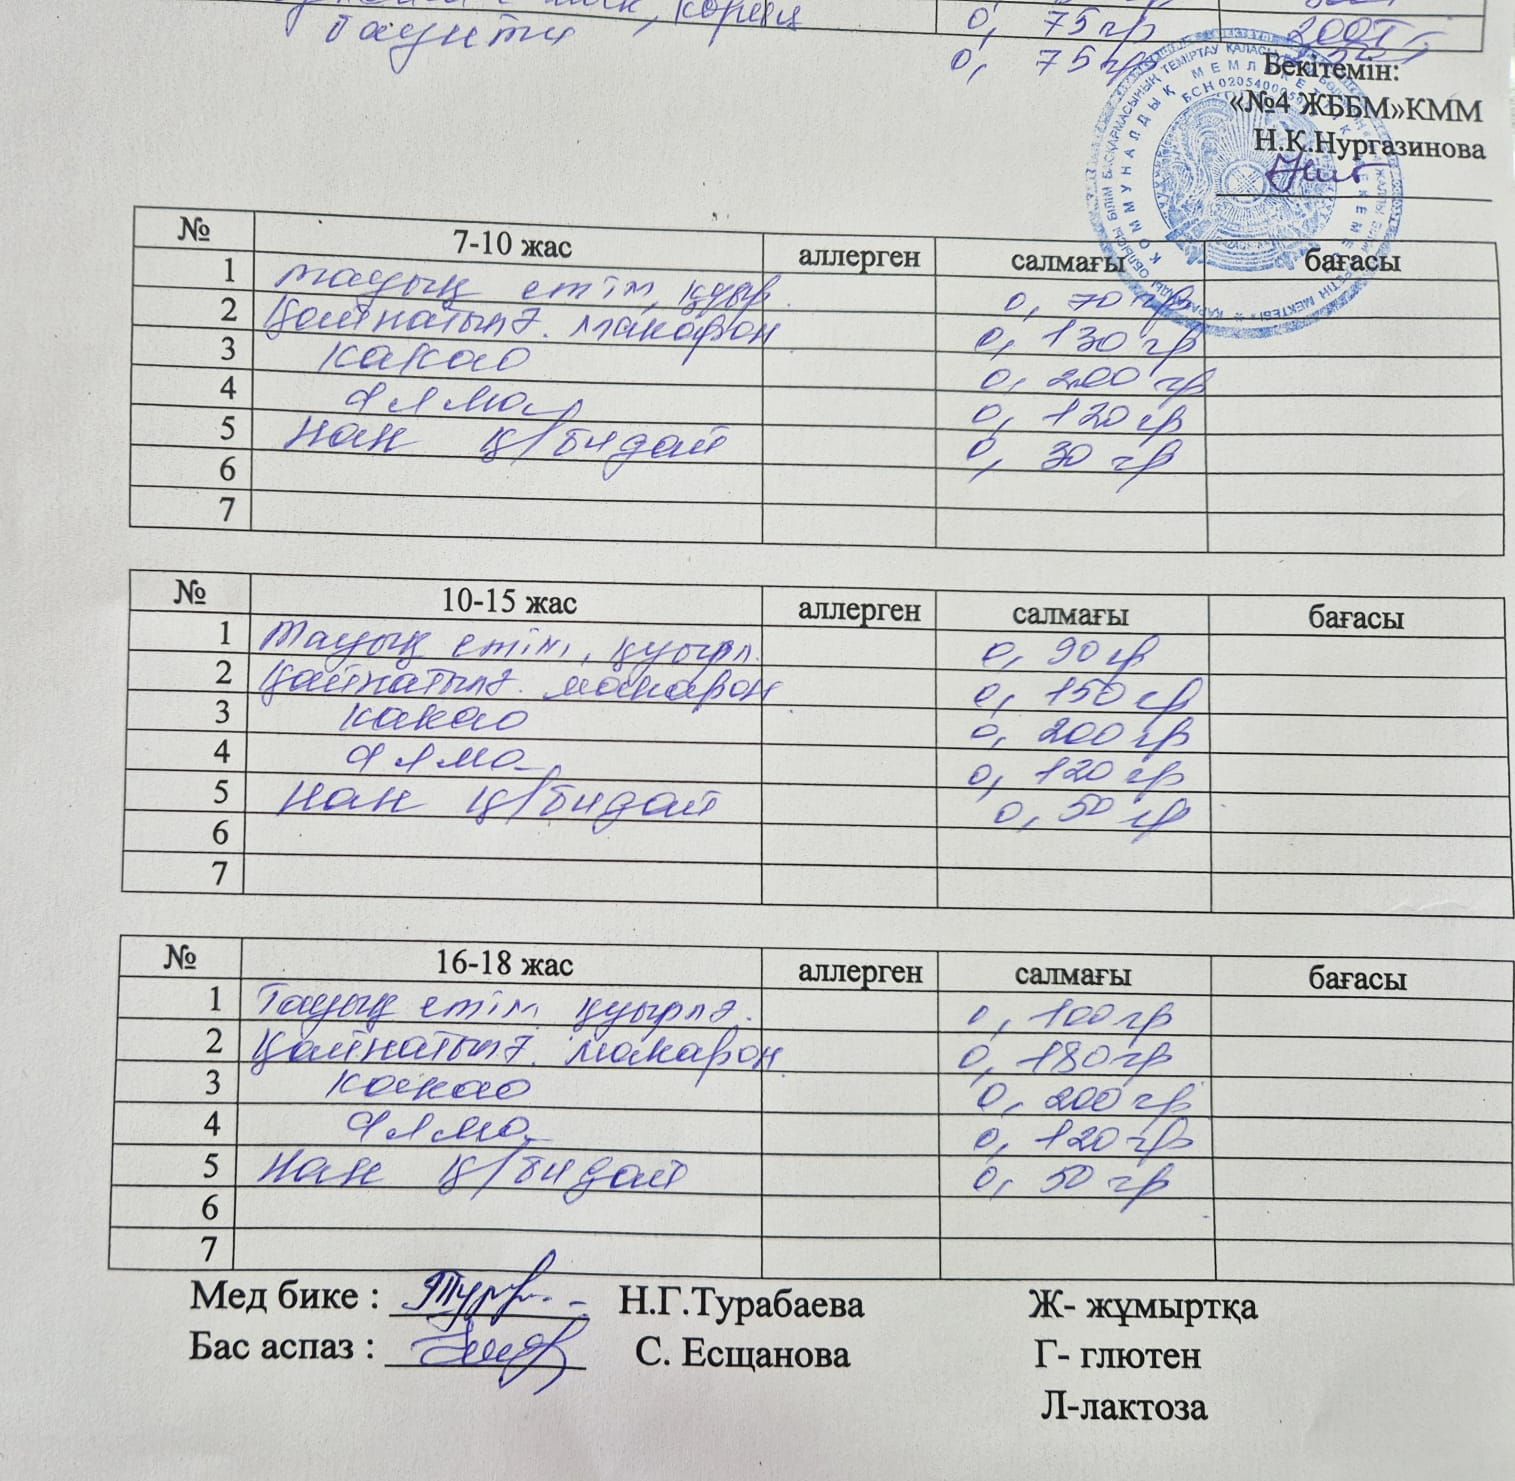 корица
0, 75 гр
200тг
баунти
0, 75 гр
Бекітемін:
«№4 ЖББМ»КММ
Н.Қ.Нургазинова
№ 7-10 жас аллерген салмағы бағасы
1 тауық етім, қуыр. 0, 70 гр
2 Қайнатылғ. макарон 0, 130 гр
3 какао 0, 200 гр
4 алма 0, 120 гр
5 нан қ/бидай 0, 30 гр
6
7
№ 10-15 жас аллерген салмағы бағасы
1 тауық етім, қуырл. 0, 90 гр
2 Қайнатылғ. макарон 0, 150 гр
3 какао 0, 200 гр
4 алма 0, 120 гр
5 нан қ/бидай 0, 50 гр
6
7
№ 16-18 жас аллерген салмағы бағасы
1 Тауық етім қуырлғ. 0, 100 гр
2 Қайнатылғ. макарон 0, 180 гр
3 какао 0, 200 гр
4 алма 0, 120 гр
5 нан қ/бидай 0, 50 гр
6
7
Мед бике : Н.Г.Турабаева Ж- жұмыртқа
Бас аспаз : С. Есщанова Г- глютен
Л-лактоза